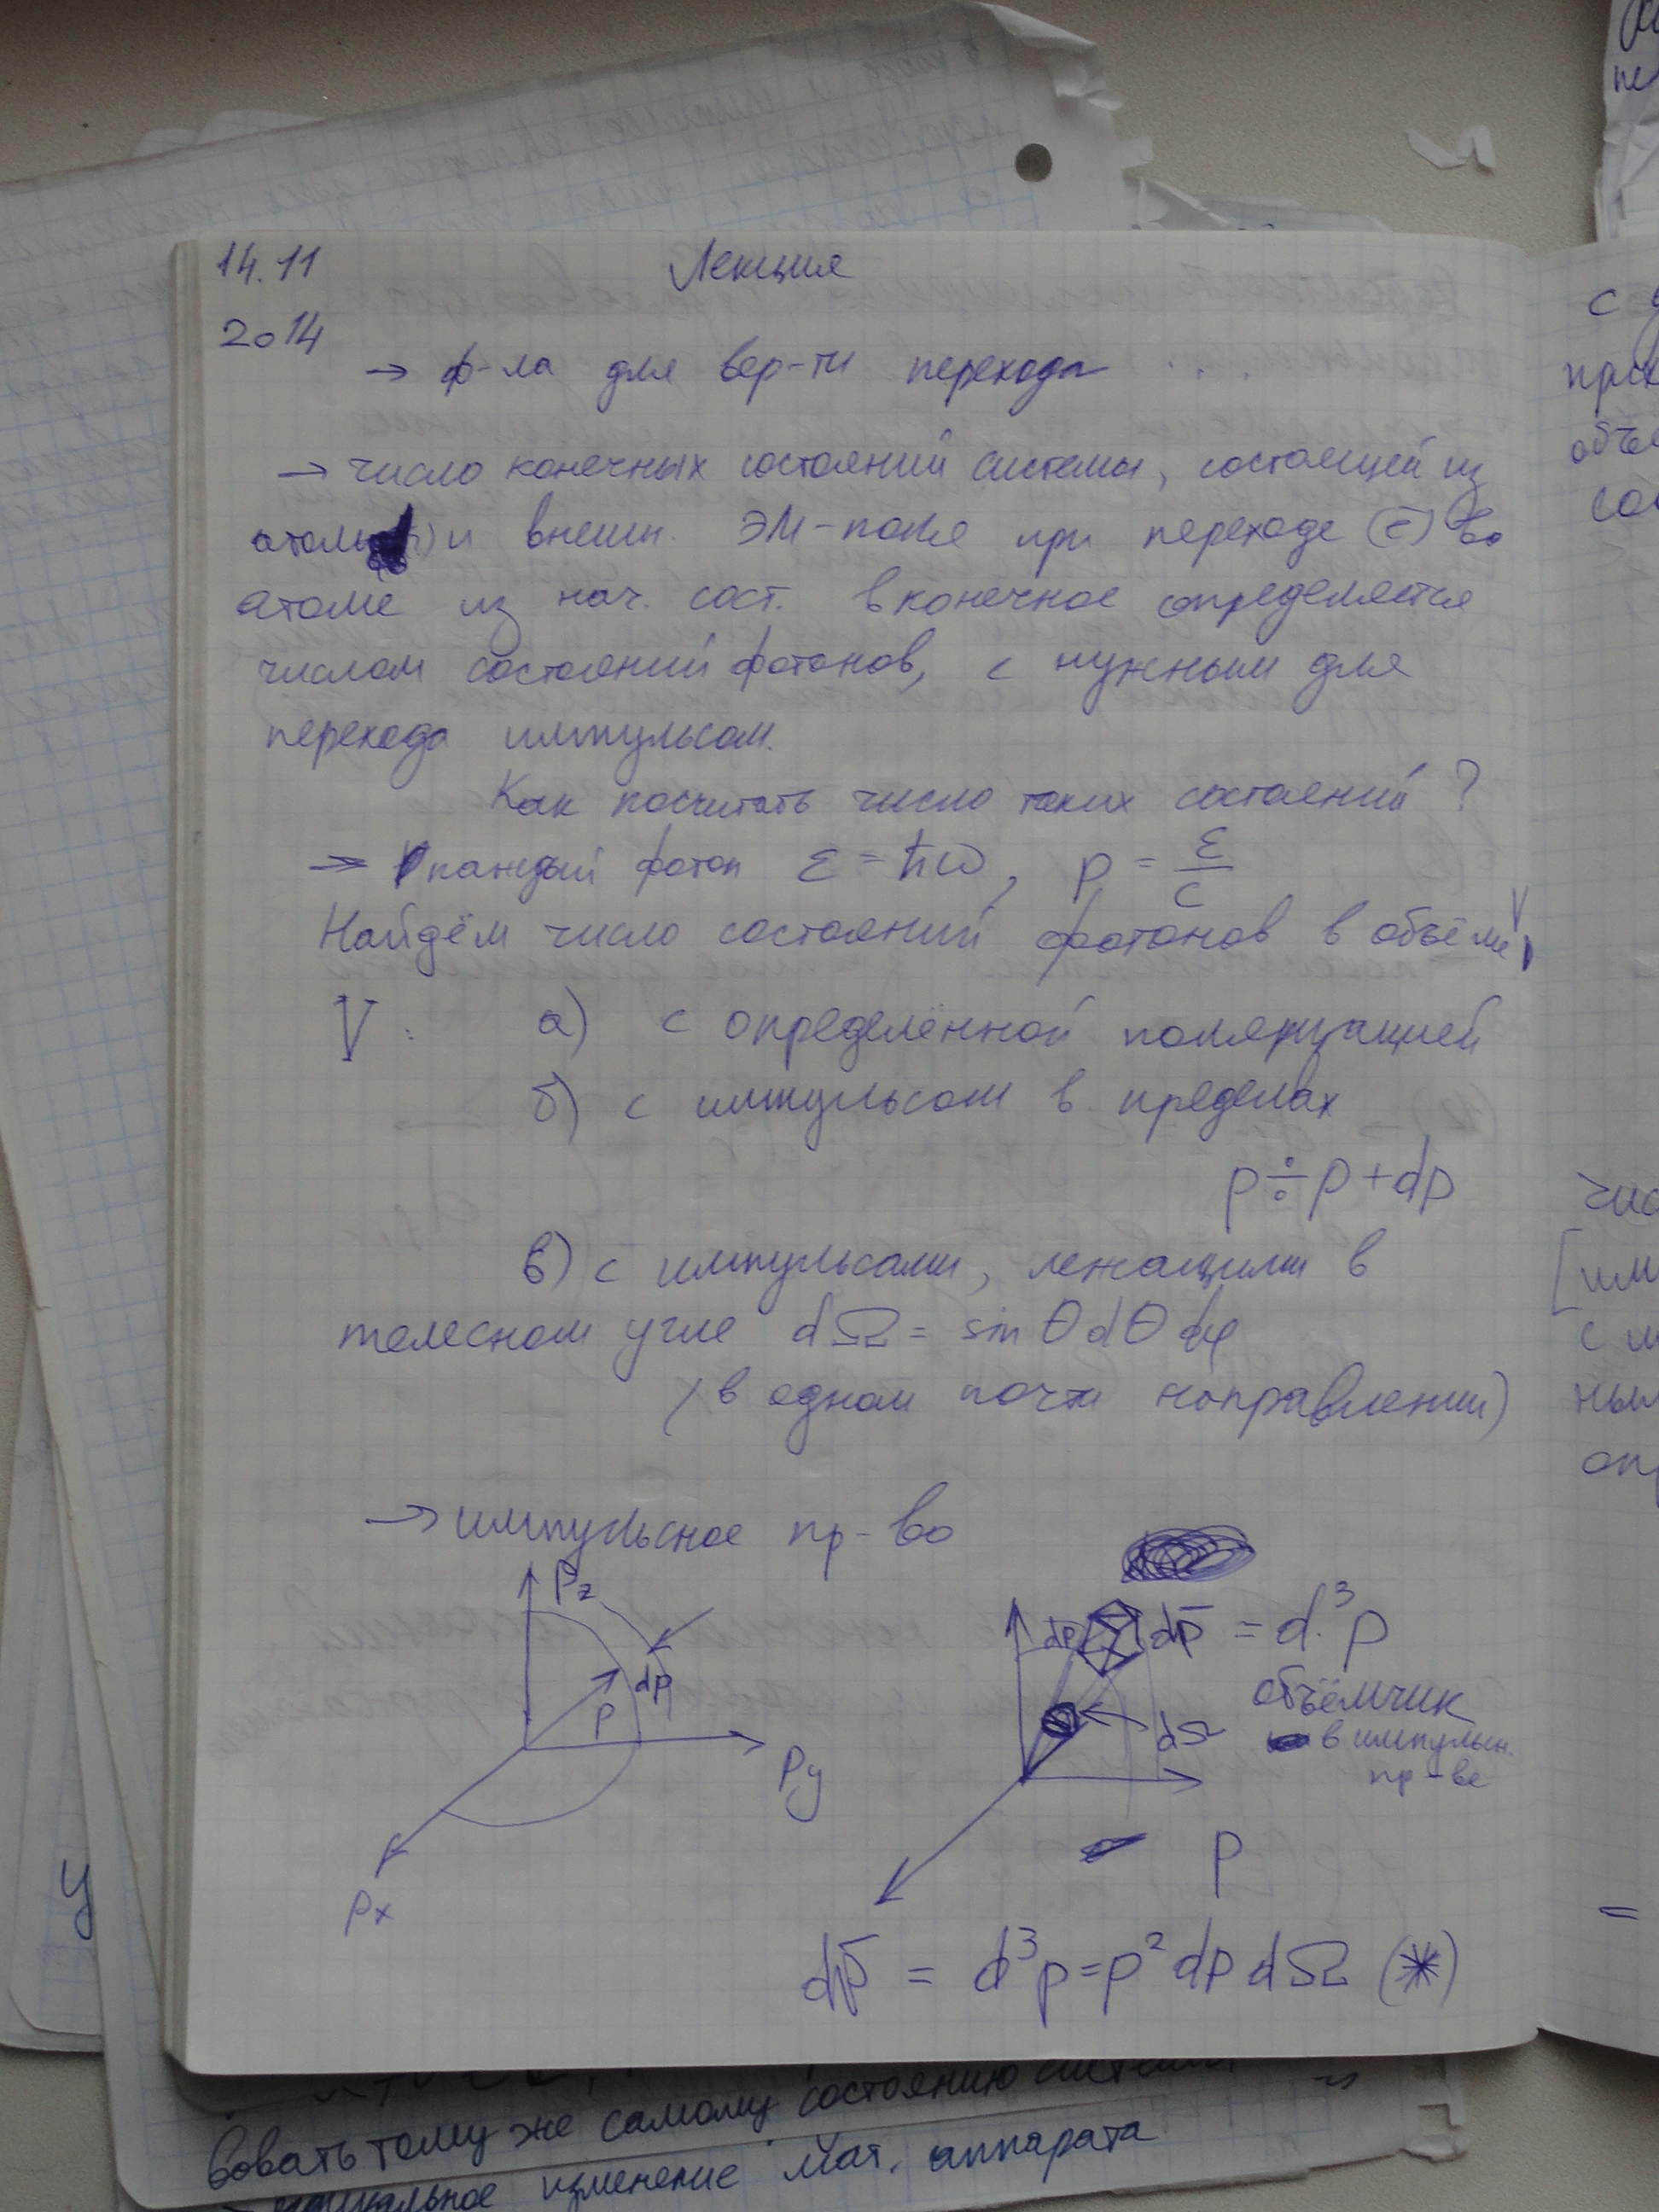 14.11
2014
Лекция
→ ф-ла для вер-ти перехода ...
→ число конечных состояний системы, состоящей из
атома и внешн. ЭМ-поля при переходе (ē) во
атоме из нач. сост. в конечное определяется
числом состояний фотонов, с нужным для
перехода импульсом.
Как посчитать число таких состояний ?
→ каждый фотон ε = ħω, p = ε/c
Найдём число состояний фотонов в объёме V
V: а) с определённой поляризацией
б) с импульсом в пределах
p ÷ p + dp
в) с импульсами, лежащими в
телесном угле dΩ = sin θ dθ dφ
(в одном почти направлении)
→ импульсное пр-во
Pz
dp
P
Py
Px
dp
dp̄ = d³p
объёмчик
в импульсн.
пр-ве
dΩ
p
dp̄ = d³p = p² dp dΩ (*)
вовать тому же самому состоянию системы
изменение Мат. аппарата